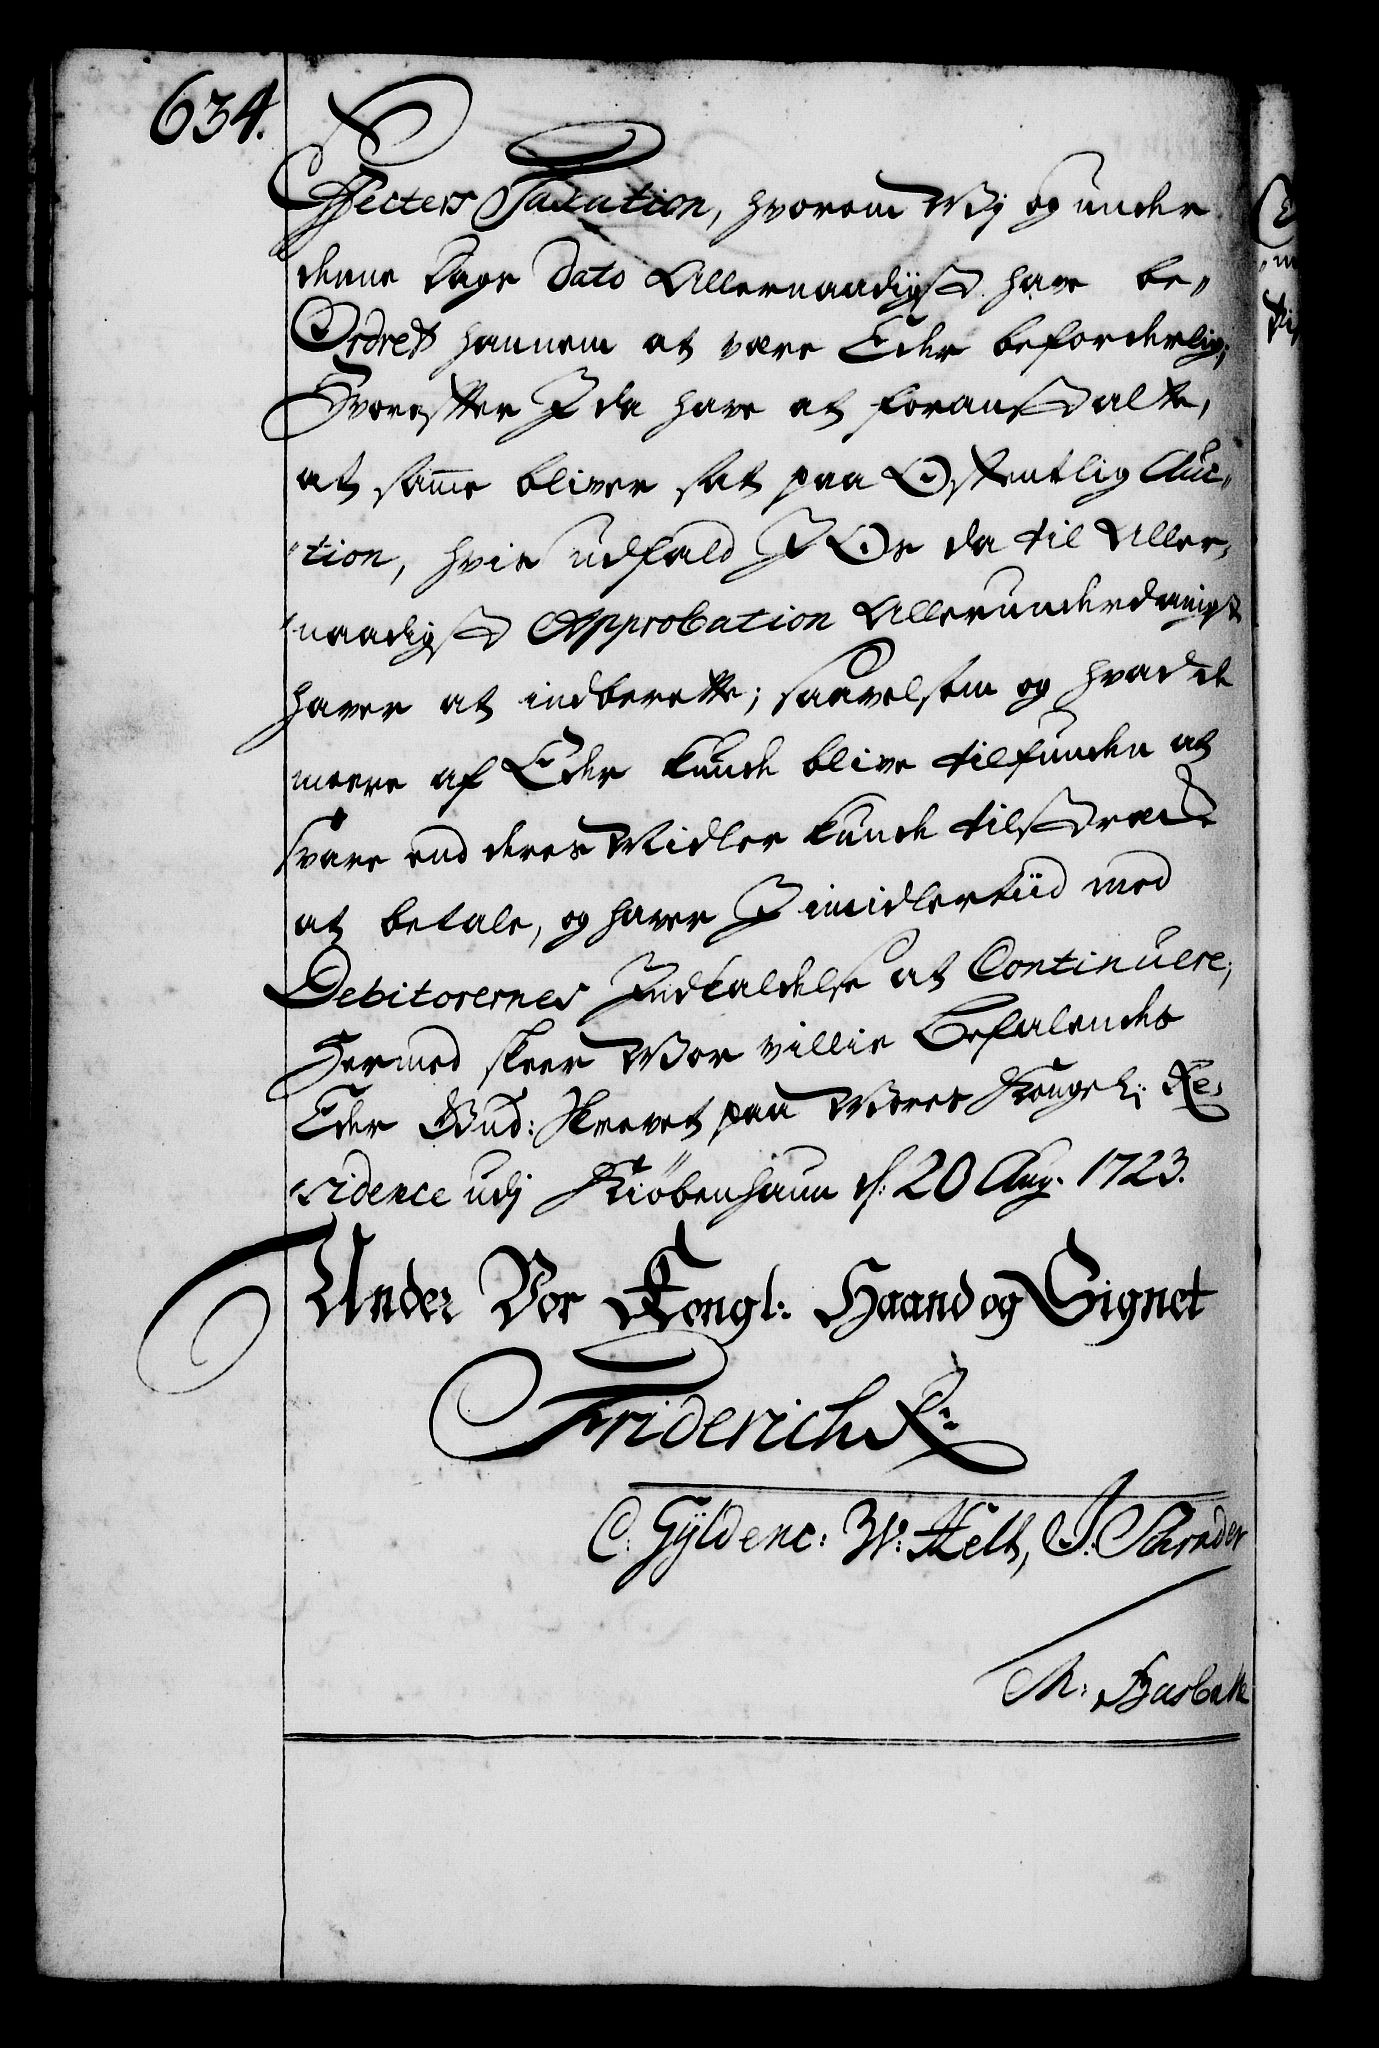 634.
Effecters Taxation, hvorom Wj og under
denne Dags Dato Allernaadigst have be-
Ordret hannem at være Eder beforderlig;
Hvorefter I da have at foranstalte,
at samme bliver sat paa Offentlig Auc-
-tion, hvis udfald I Os da til Aller-
-naadigst Approbation Allerunderdanigst
haver at indberette; saavelsom og hvad de
meere af Eder kunde blive tilfunden at
svare end deres Midler kunde tilstrecke
at betale, og haver I imidlertiid med
Debitorernes Indkaldelse at Continuere;
Hermed skeer Wor villie Befalendes
Eder Gud: Skrevet paa Wores Kongel: Re-
-sidence udj Kiøbenhaun d: 20 Aug. 1723.
Under Vor Kongl: Haand og Signet
Friderich R:
C: Gyldenc: W: Helt, J: Schrader
M: